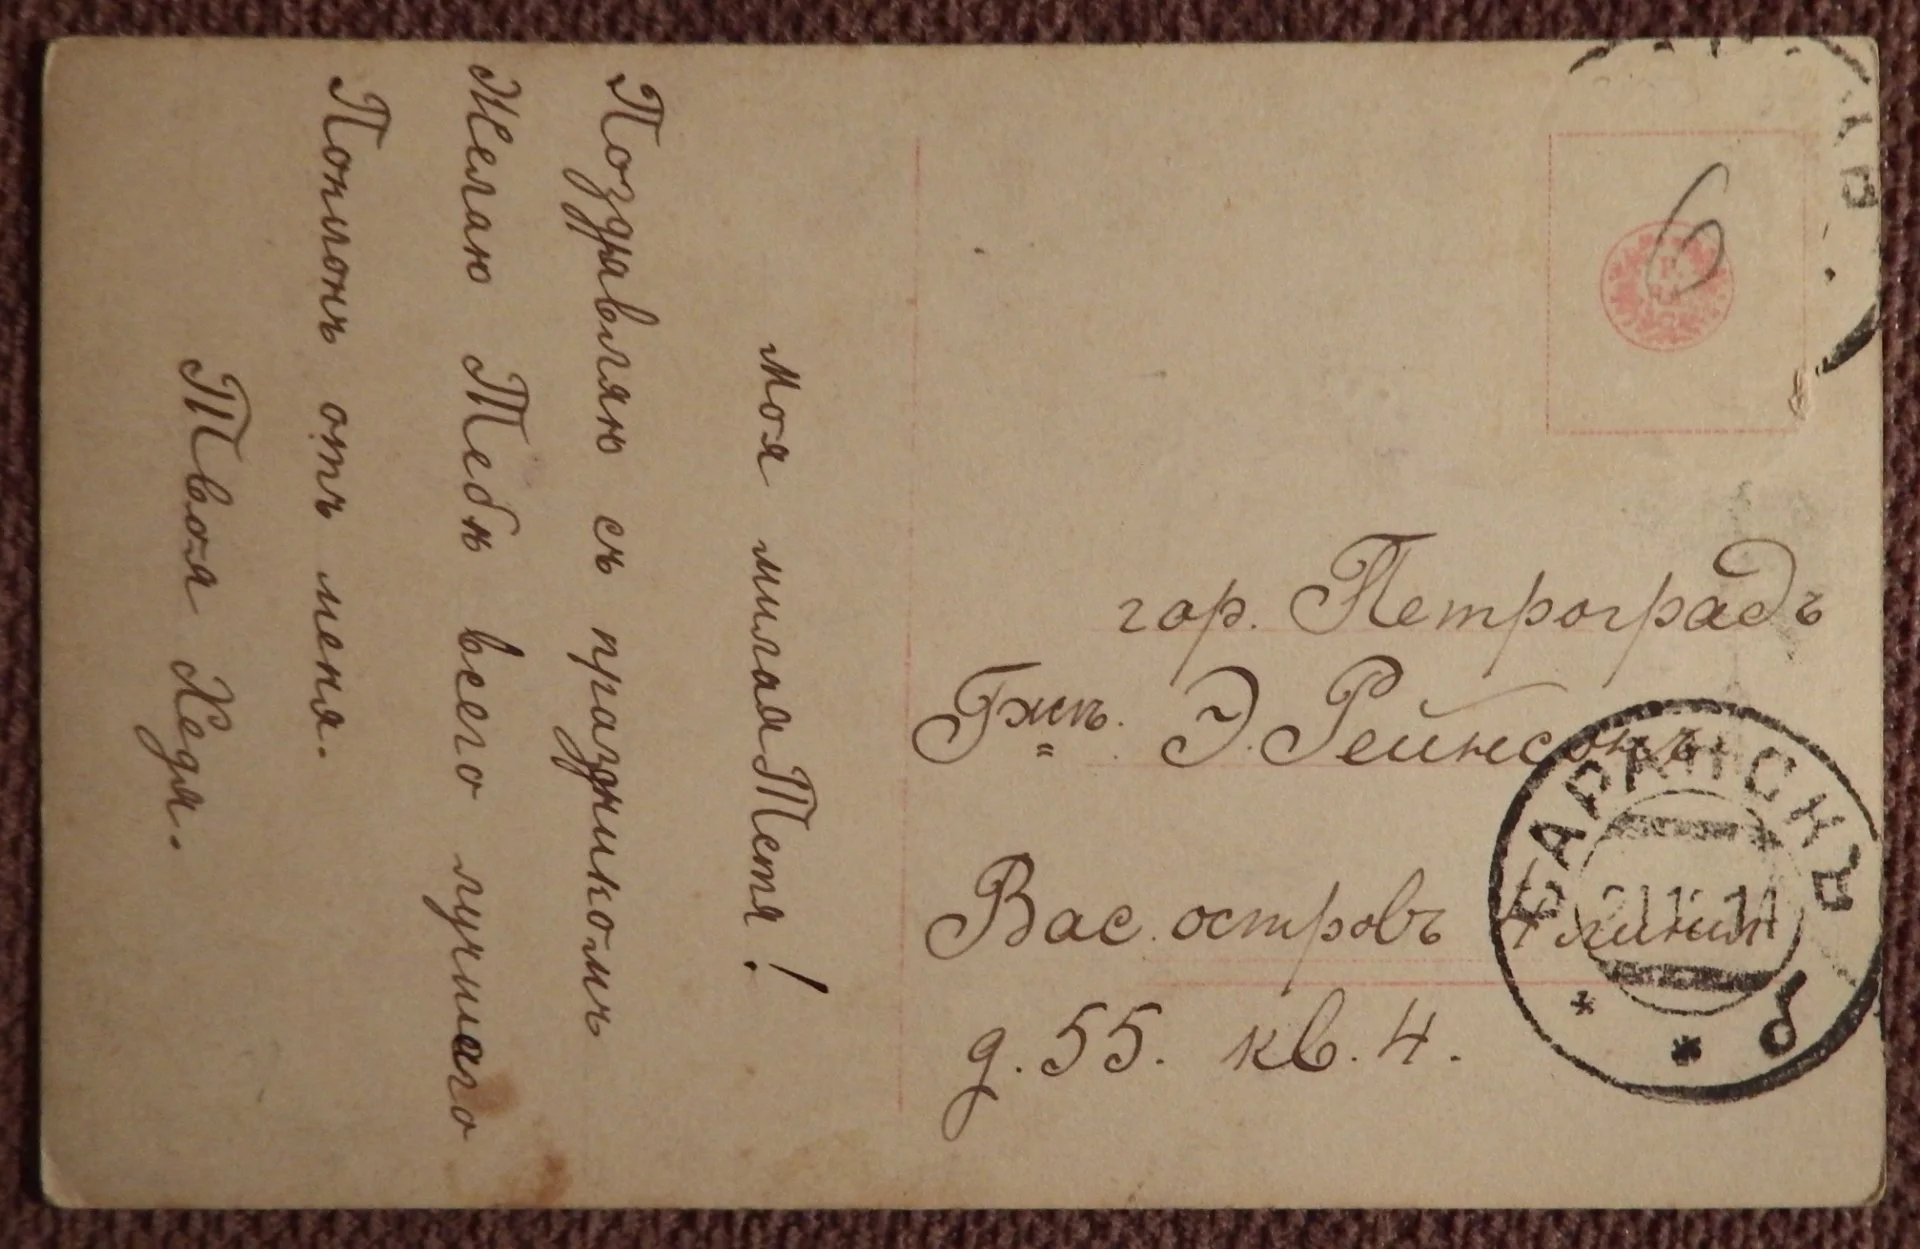 Моя милая Тетя!
Поздравляю съ праздникомъ
Желаю Тебѣ всего лучшаго
Поклонъ отъ меня.
Твоя Хедя.
6
гор. Петроградъ
Гжѣ. Э. Рейнсонъ
Вас. островъ 4 линия
д. 55. кв. 4.
САРАНСКЪ
б